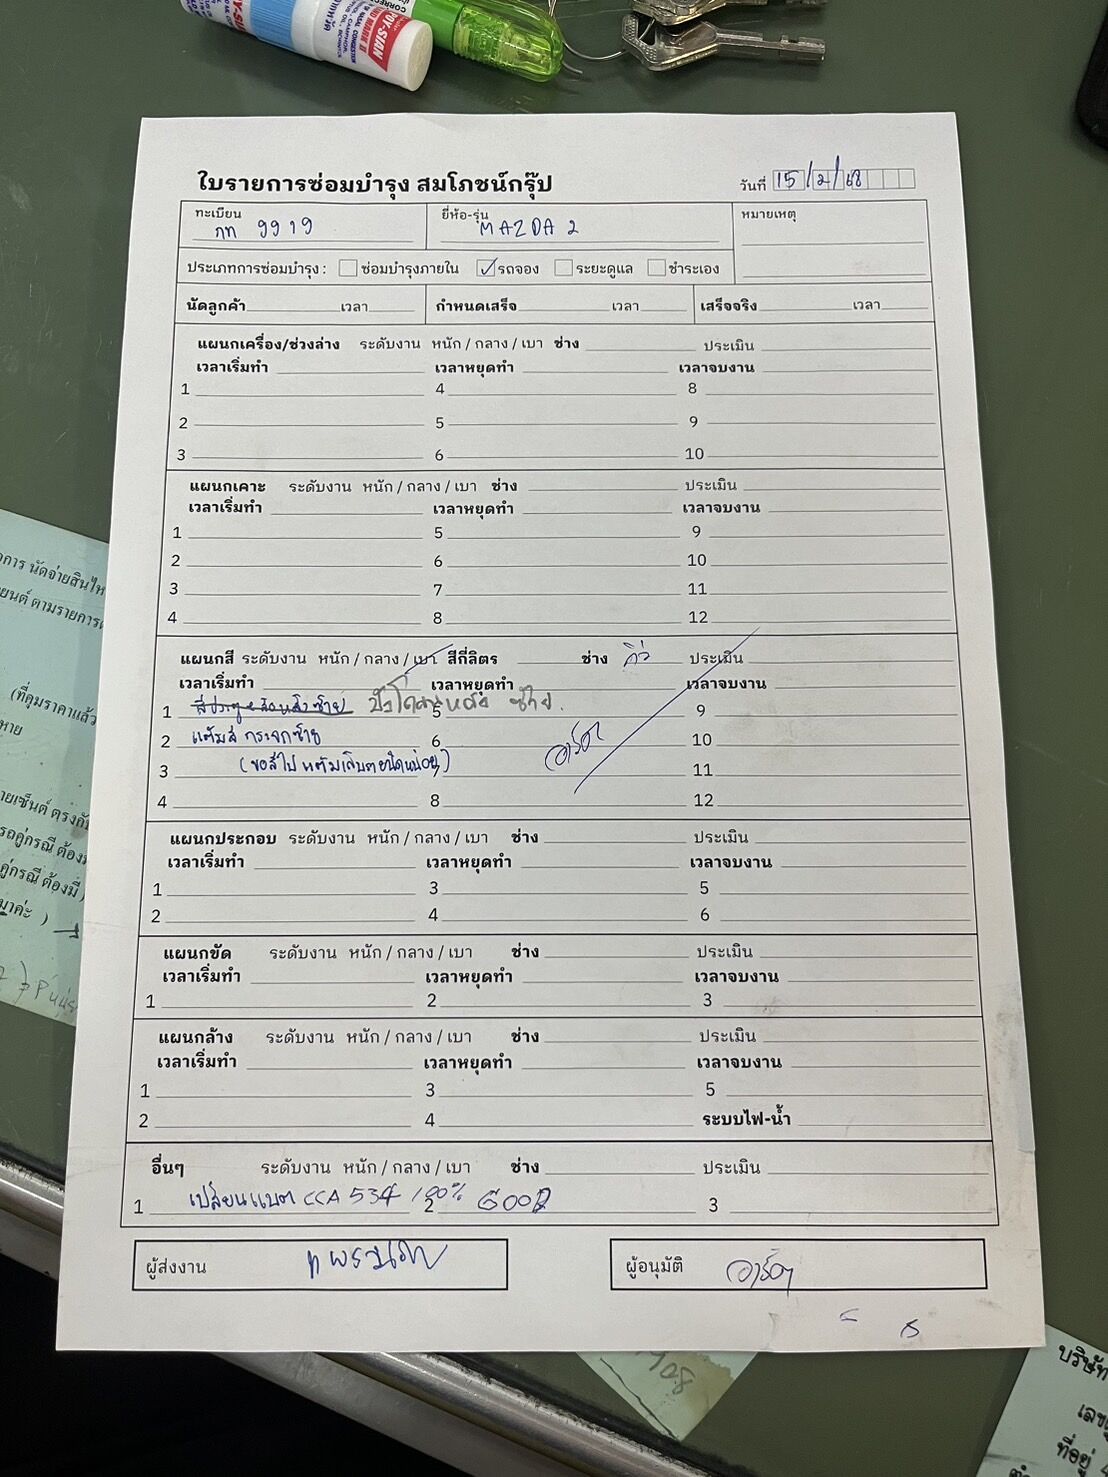 POY-SIAN
ใบรายการซ่อมบำรุง สมโภชน์กรุ๊ป
วันที่ 15/2/68
ทะเบียน กท 9919
ยี่ห้อ-รุ่น MAZDA 2
หมายเหตุ
ประเภทการซ่อมบำรุง : ซ่อมบำรุงภายใน ✓รถจอง ระยะดูแล ชำระเอง
นัดลูกค้า เวลา กำหนดเสร็จ เวลา เสร็จจริง เวลา
แผนกเครื่อง/ช่วงล่าง ระดับงาน หนัก / กลาง / เบา ช่าง ประเมิน
เวลาเริ่มทำ เวลาหยุดทำ เวลาจบงาน
1 4 8
2 5 9
3 6 10
แผนกเคาะ ระดับงาน หนัก / กลาง / เบา ช่าง ประเมิน
เวลาเริ่มทำ เวลาหยุดทำ เวลาจบงาน
1 5 9
2 6 10
3 7 11
4 8 12
แผนกสี ระดับงาน หนัก / กลาง / เบา สีกี่ลิตร ช่าง กิว ประเมิน
เวลาเริ่มทำ เวลาหยุดทำ เวลาจบงาน
1 5 ซ้าย 9
2 แต้มสี กระจกซ้าย 6 10
3 (ขอสีไป 7 11
4 8 12
แผนกประกอบ ระดับงาน หนัก / กลาง / เบา ช่าง ประเมิน
เวลาเริ่มทำ เวลาหยุดทำ เวลาจบงาน
1 3 5
2 4 6
แผนกขัด ระดับงาน หนัก / กลาง / เบา ช่าง ประเมิน
เวลาเริ่มทำ เวลาหยุดทำ เวลาจบงาน
1 2 3
แผนกล้าง ระดับงาน หนัก / กลาง / เบา ช่าง ประเมิน
เวลาเริ่มทำ เวลาหยุดทำ เวลาจบงาน
1 3 5
2 4 ระบบไฟ-น้ำ
อื่นๆ ระดับงาน หนัก / กลาง / เบา ช่าง ประเมิน
1 เปลี่ยนแบต CCA 534 100% 2 GOOD 3
ผู้ส่งงาน
ผู้อนุมัติ
บริษัท
ที่อยู่